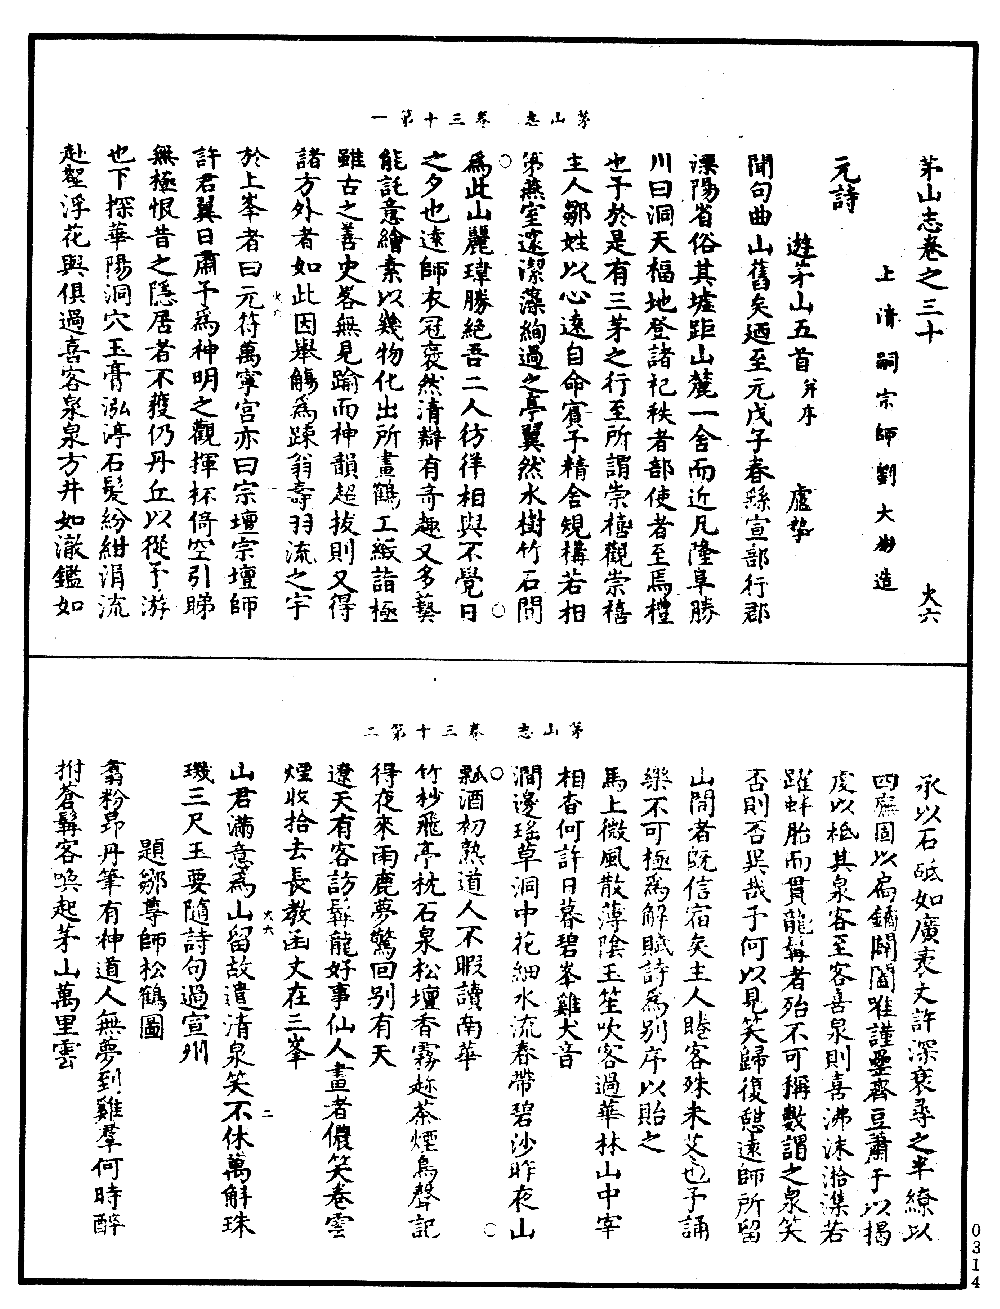 茅山志　卷三十第一
茅山志卷之三十　　火六
上清嗣宗師劉大彬造
元詩
遊茅山五首并序　盧摯
聞句曲山舊矣迺至元戊子春縣宣部行郡
溧陽省俗其墟距山麓一舍而近凡隆阜勝
川曰洞天福地登諸祀秩者部使者至焉禮
也予於是有三茅之行至所謂崇禧觀崇禧
主人鄒姓以心遠自命賓予精舍規構若相
第燕室邃潔藻絢過之亭翼然水樹竹石間
為此山麗瑋勝絕吾二人彷徉相與不覺日
之夕也遠師衣冠褒然清辯有奇趣又多藝
能託意繪素以幾物化出所畫鶴工緻詣極
雖古之善史畧無見踰而神韻超拔則又得
諸方外者如此因舉觴為踈翁壽羽流之宇
火六
於上峯者曰元符萬寧宮亦曰宗壇宗壇師
許君翼日肅予為神明之觀揮杯倚空引睇
無極恨昔之隱居者不獲仍丹丘以從予游
也下探華陽洞穴玉膏泓渟石髮紛紺涓流
赴壑浮花與俱過喜客泉泉方井如澈鑑如
茅山志　卷三十第二
承以石砥如廣袤丈許深裒尋之半繚以
四廡固以扃鐍闢闔唯謹壘齊豆蕭于以揭
虔以柢其泉客至客喜泉則喜沸沫潝潗若
躍蚌胎而貫龍髯者殆不可稱數謂之泉笑
否則否异哉予何以見笑歸復憇遠師所留
山間者既信宿矣主人睠客殊未艾也予誦
樂不可極為解賦詩為別序以貽之
馬上微風散薄陰玉笙吹客過華林山中宰
相香何許日暮碧峯雞犬音
澗邊瑤草洞中花細水流春帶碧沙昨夜山
瓢酒初熟道人不暇讀南華
竹杪飛亭枕石泉松壇香霧趂茶煙鳥聲記
得夜來雨鹿夢驚回別有天
遼天有客訪髯龍好事仙人畫者儂笑卷雲
煙收拾去長教函丈在三峯
火六　二
山君滿意為山留故遣清泉笑不休萬斛珠
璣三尺玉要隨詩句過宣州
題鄒尊師松鶴圖
翕粉昂丹筆有神道人無夢到雞羣何時醉
拊蒼髯客喚起茅山萬里雲
0314